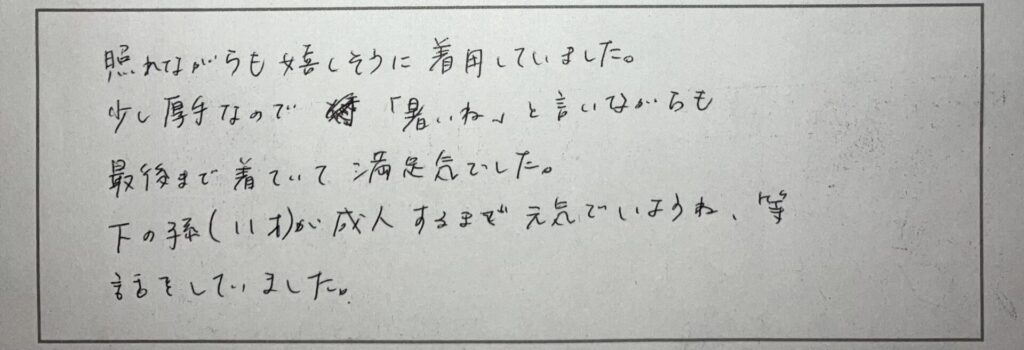 照れながらも嬉しそうに着用していました。
少し厚手なので「暑いね」と言いながらも
最後まで着ていて満足気でした。
下の孫(11才)が成人するまで元気でいようね、等
話をしていました。